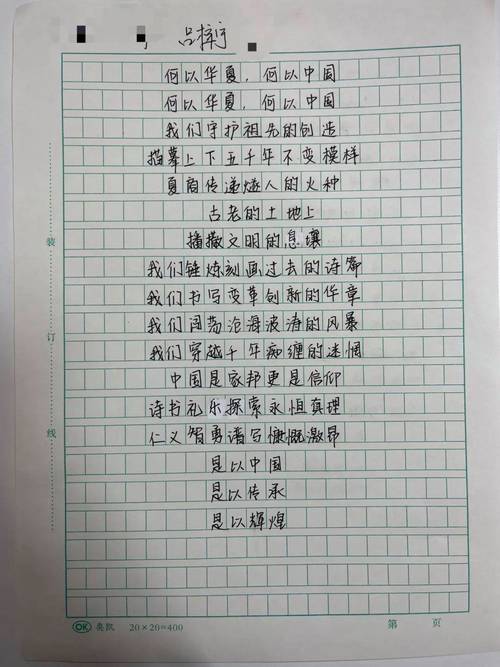 吕梓宁
何以华夏,何以中国
何以华夏,何以中国
我们守护祖先的创造
描摹上下五千年不变模样
夏商传递燧人的火种
古老的土地上
播撒文明的息壤
我们锤炼刻画过去的诗篇
我们书写变革创新的华章
我们闯荡沧海波涛的风暴
我们穿越千年痴缠的迷惘
中国是家邦更是信仰
诗书礼乐探索永恒真理
仁义智勇谱写慷慨激昂
是以中国
是以传承
是以辉煌
装
订
线
OK 奥凯 20×20=400
第 页